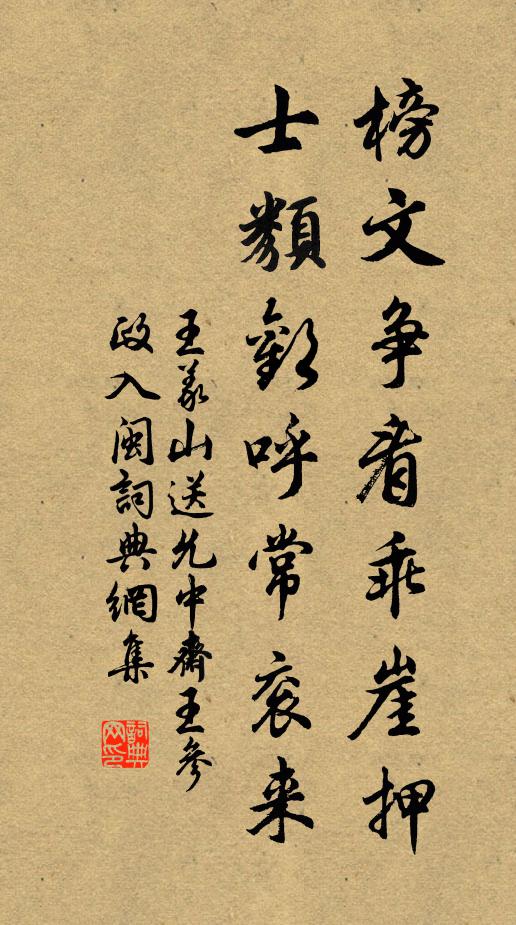 榜文争看乖崖押
士類歡呼常衮来
王義山送允中齋王參
政入閩詞典網集
詞典网印